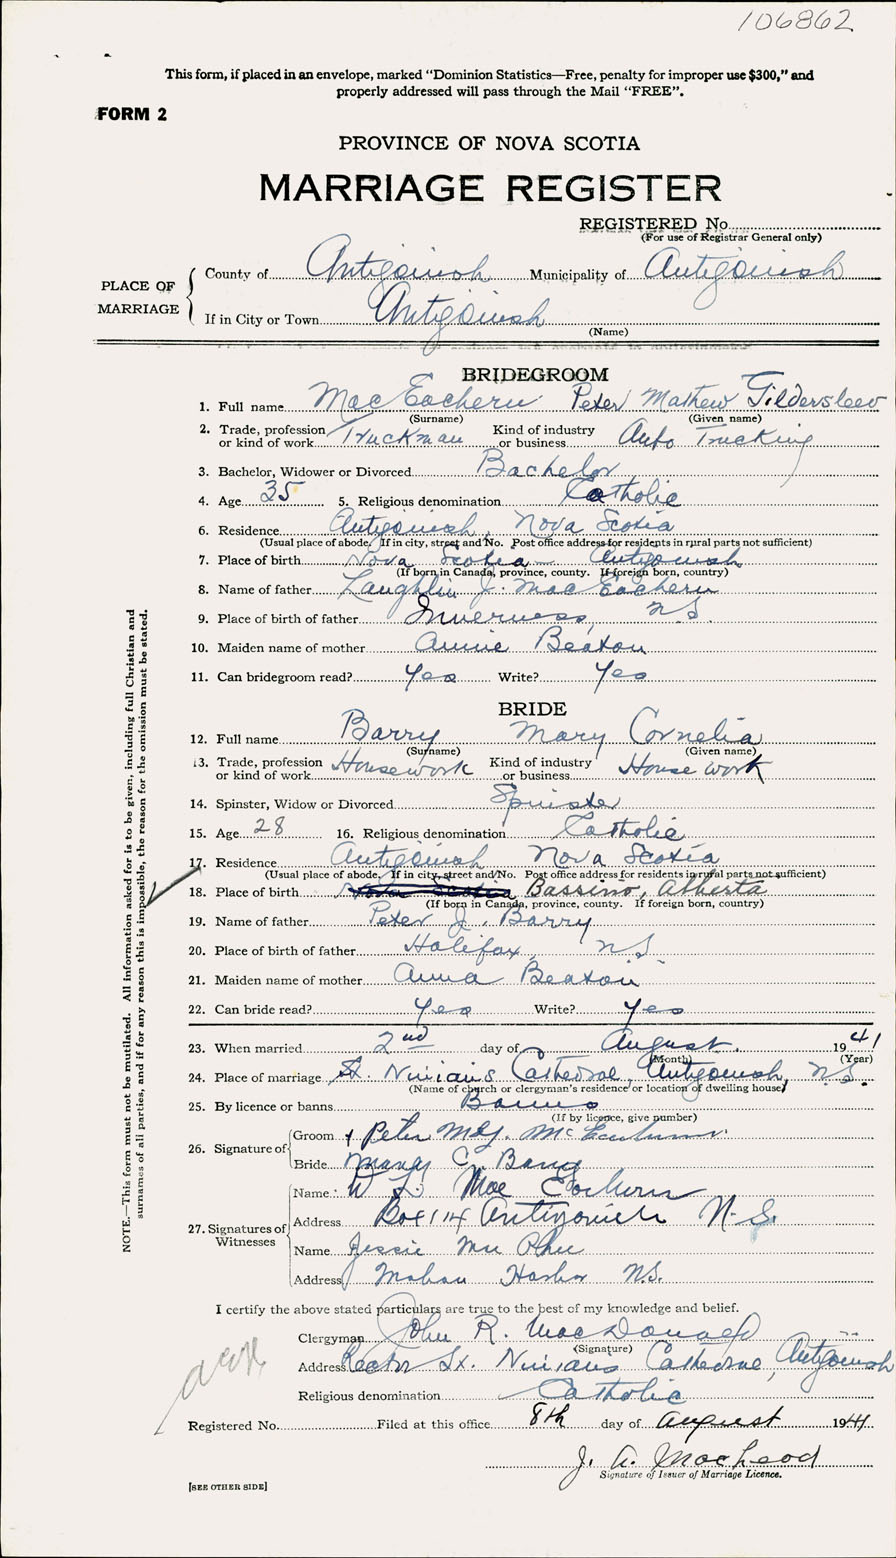 106862
This form, if placed in an envelope, marked "Dominion Statistics—Free, penalty for improper use $300," and
properly addressed will pass through the Mail "FREE".
FORM 2
PROVINCE OF NOVA SCOTIA
MARRIAGE REGISTER
REGISTERED No.
(For use of Registrar General only)
PLACE OF MARRIAGE
County of Antigonish Municipality of Antigonish
If in City or Town Antigonish
(Name)
BRIDEGROOM
1. Full name MacEachern Peter Mathew Gildersleev
(Surname) (Given name)
2. Trade, profession or kind of work Truckman Kind of industry or business Auto Trucking
3. Bachelor, Widower or Divorced Bachelor
4. Age 35 5. Religious denomination Catholic
6. Residence Antigonish, Nova Scotia
(Usual place of abode. If in city, street and No. Post office address for residents in rural parts not sufficient)
7. Place of birth Nova Scotia - Antigonish
(If born in Canada, province, county. If foreign born, country)
8. Name of father Laughlin J. MacEachern
9. Place of birth of father Inverness, N.S.
10. Maiden name of mother Annie Beaton
11. Can bridegroom read? Yes Write? Yes
BRIDE
12. Full name Barry Mary Cornelia
(Surname) (Given name)
13. Trade, profession or kind of work Housework Kind of industry or business House work
14. Spinster, Widow or Divorced Spinster
15. Age 28 16. Religious denomination Catholic
17. Residence Antigonish Nova Scotia
(Usual place of abode. If in city, street and No. Post office address for residents in rural parts not sufficient)
18. Place of birth Nova Scotia Bassino, Alberta
(If born in Canada, province, county. If foreign born, country)
19. Name of father Peter J. Barry
20. Place of birth of father Halifax, N.S.
21. Maiden name of mother Anna Beaton
22. Can bride read? Yes Write? Yes
23. When married 2nd day of August. 1941
(Month) (Year)
24. Place of marriage St. Ninian's Cathedral, Antigonish, N.S.
(Name of church or clergyman's residence or location of dwelling house)
25. By licence or banns Banns
(If by licence, give number)
26. Signature of
Groom Peter
Bride Mary C. Barry
27. Signatures of Witnesses
Name W L. Mac Eachern
Address Box 114 Antigonish N.S.
Name Jessie
Address Mabou Harbor N.S.
I certify the above stated particulars are true to the best of my knowledge and belief.
Clergyman John R. MacDonald
(Signature)
Address Rector St. Ninians Cathedral, Antigonish
Religious denomination Catholic
Registered No. Filed at this office 8th day of August 1941
J. A. MacLeod
Signature of Issuer of Marriage Licence.
[SEE OTHER SIDE]
NOTE.—This form must not be mutilated. All information asked for is to be given, including full Christian and
surnames of all parties, and if for any reason this is impossible, the reason for the omission must be stated.